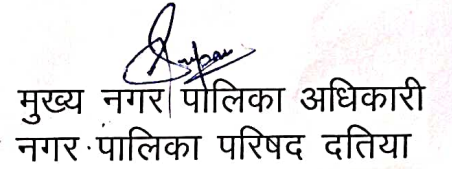 मुख्य नगर पालिका अधिकारी
नगर पालिका परिषद दतिया